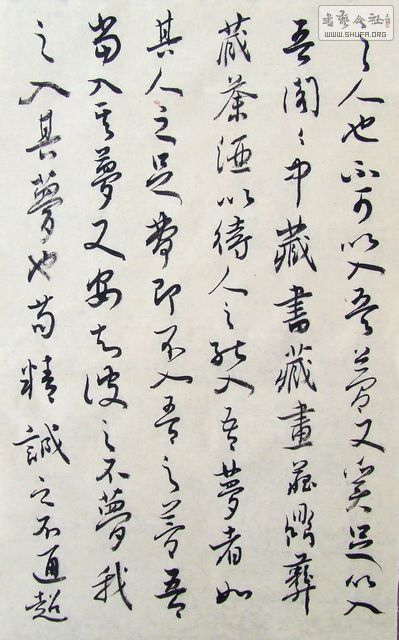 之人也不可以入吾夢又奚足以入
吾閣々中藏書藏畫藏彝
藏茶酒以待人之能入吾夢者如
其人之足夢即不入吾之夢吾
當入其夢又安知彼之不夢我
之入其夢也苟精誠之不通超
書藝公社
WWW.SHUFA.ORG